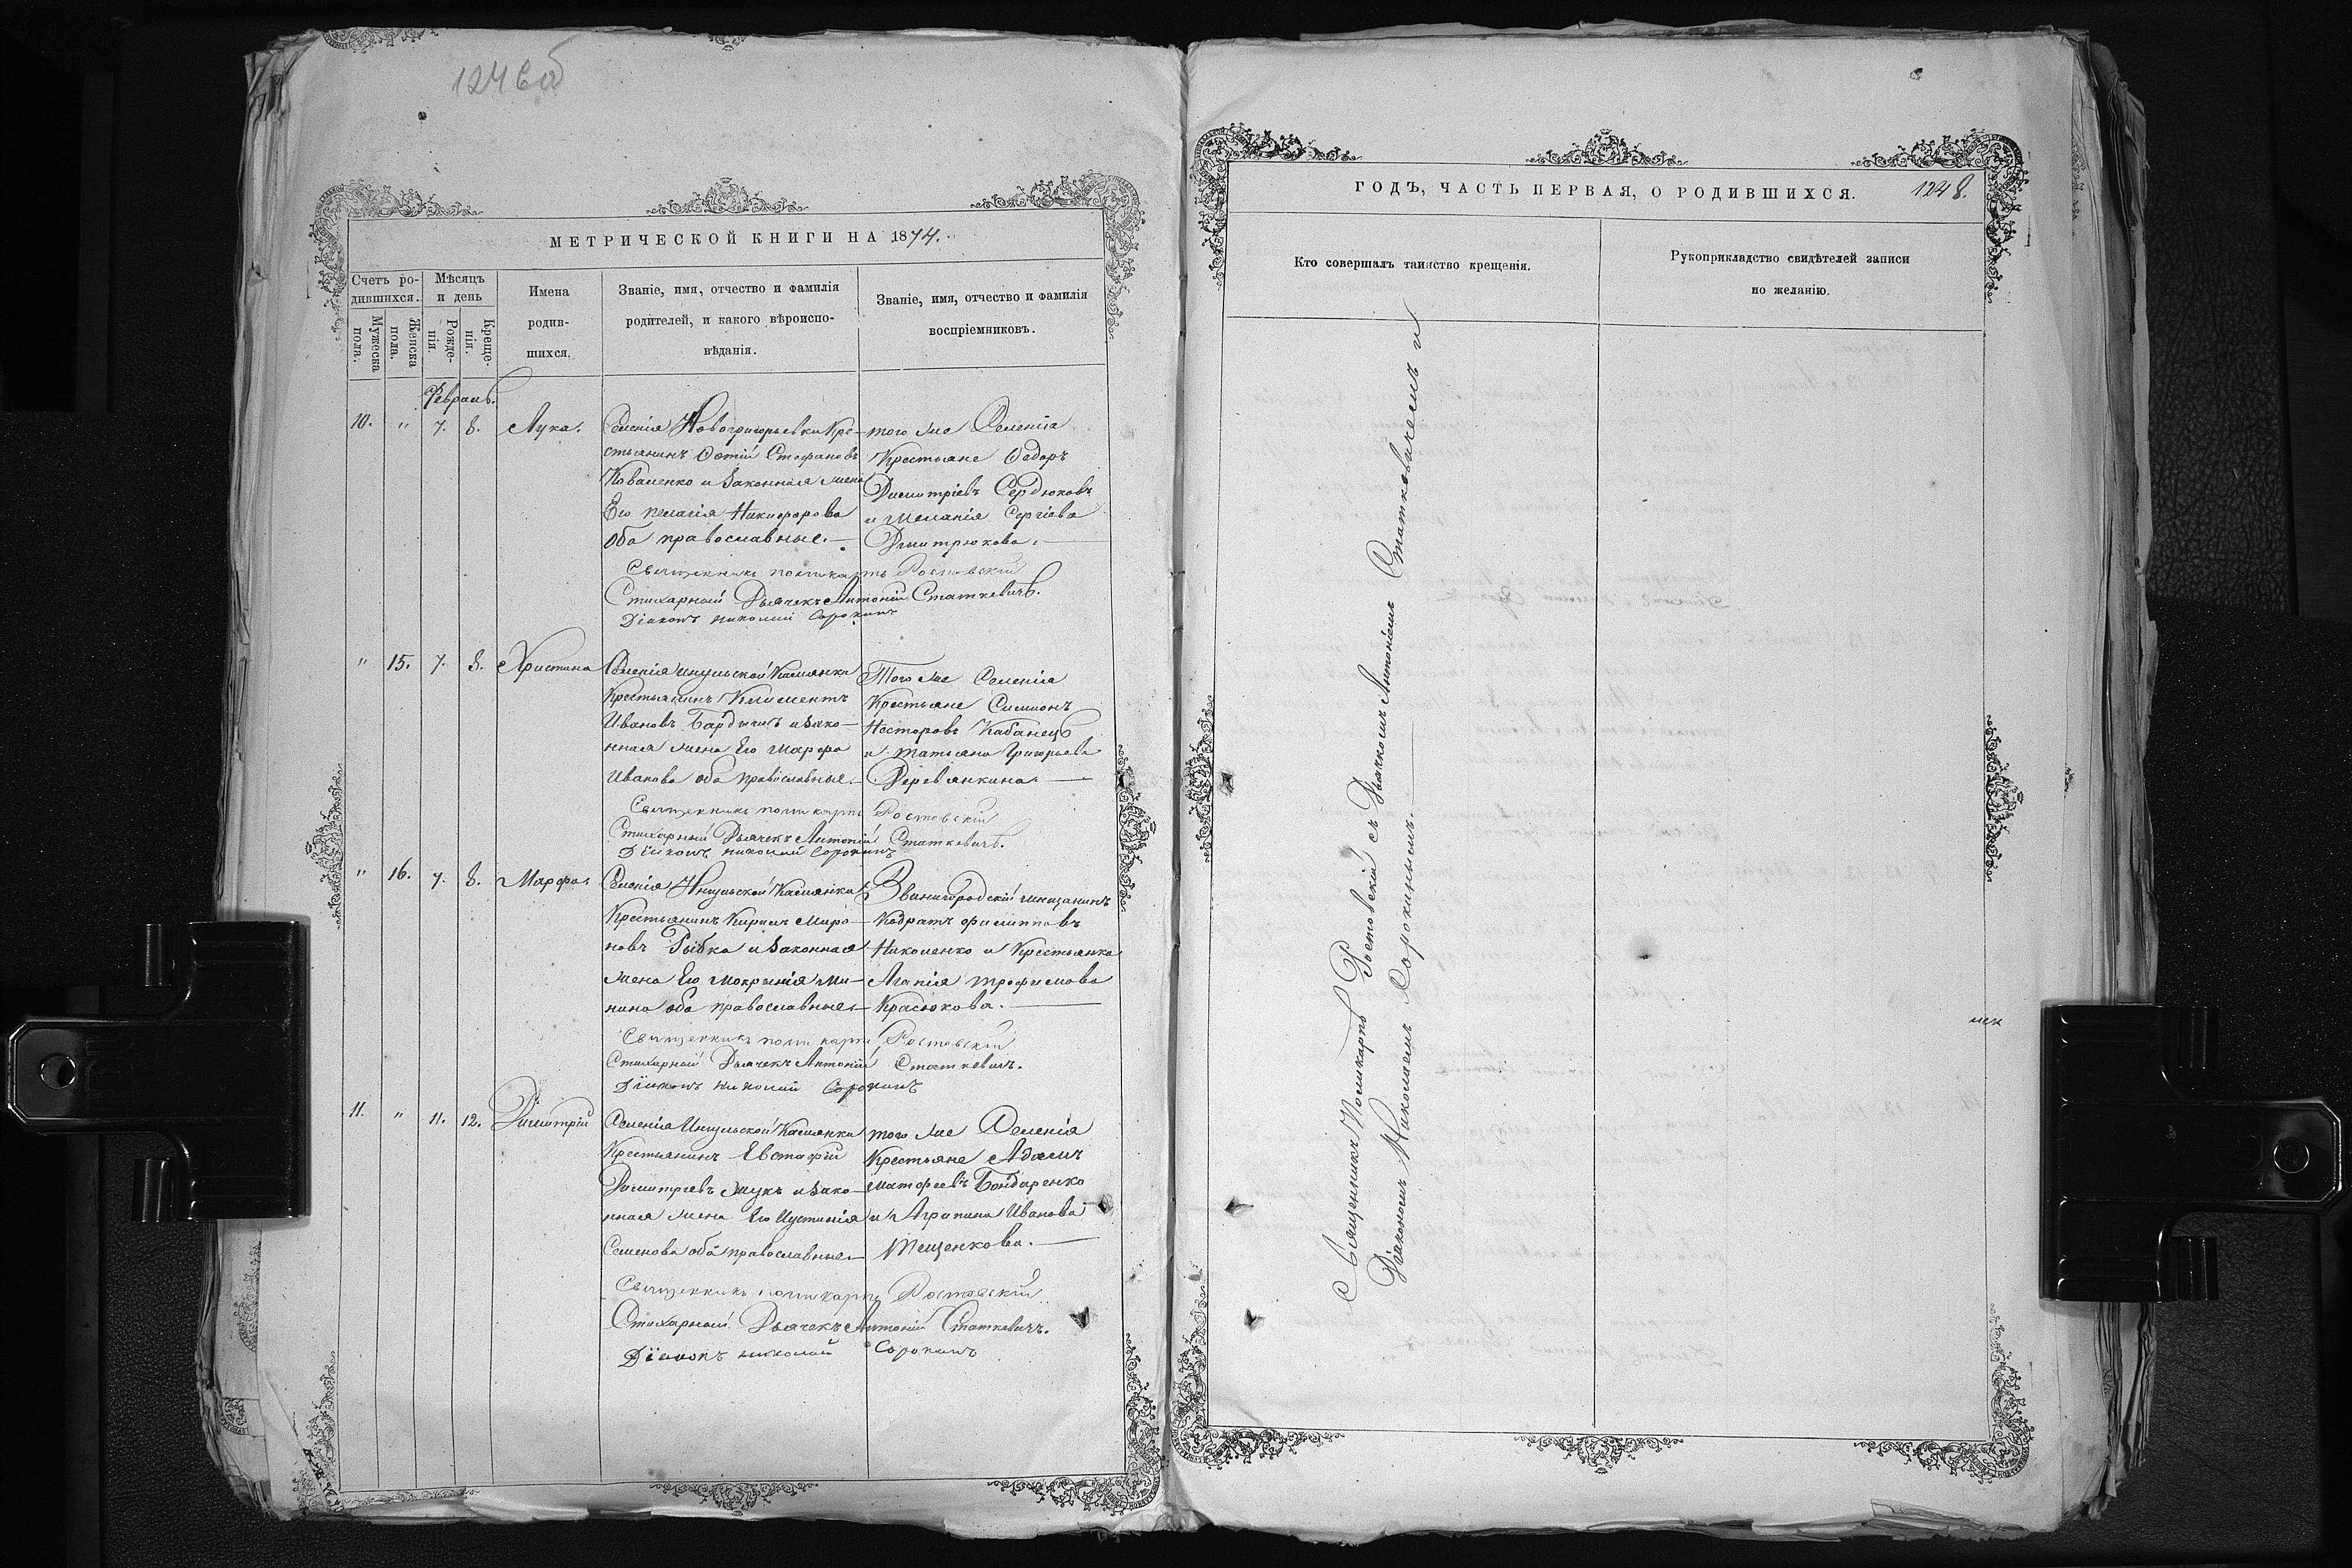 124 об
МЕТРИЧЕСКОЙ КНИГИ НА 1874.
Счетъ ро-
дившихся.
Мужеска
пола.
Женска
пола.
Мѣсяцъ
и день
Рожде-
нія.
Креще-
нія.
Имена
родив-
шихся.
Званіе, имя, отчество и фамилія
родителей, и какого вѣроиспо-
вѣданія.
Званіе, имя, отчество и фамилія
воспріемниковъ.
Февраль.
10. " 7. 8. Лука.
Селенія Новогригорьевки Кре-
стьянинъ Фотій Стефановъ
Коваленко и Законная жена
Его Пелагія Никифорова
оба православные.—
того же Селенія
Крестьяне Федоръ
Димитріевъ Сердюковъ
и Меланія Сергіева
Дмитрюкова.
Священникъ Поликарпъ Ростовскій
Стихарный Дьячекъ Антоній Статкевичъ.
Діаконъ Николай Сорокинъ
" 15. 7. 8. Христина
Селенія Ингульской Каменки
Крестьянинъ Климентъ
Ивановъ Бардычъ и Зако-
нная жена Его Марфа
Иванова оба православные.—
Того же Селенія
Крестьяне Симионъ
Несторовъ Кабанецъ
и Татьяна Григорьева
Деревянкина.
Священникъ Поликарпъ Ростовскій
Стихарный Дьячекъ Антоній Статкевичъ.
Діаконъ Николай Сорокинъ
" 16. 7. 8. Марфа
Селенія Ингульской Каменки
Крестьянинъ Кирилъ Миро-
новъ Рыбка и Законная
жена Его Мокринія Ми-
нина оба православные.—
Звинигородскій мещанинъ
Кодратъ Филипповъ
Николенко и Крестьянка
Агапія Трофимова
Красюкова.
Священникъ Поликарпъ Ростовскій
Стихарный Дьячекъ Антоній Статкевичъ.
Діаконъ Николай Сорокинъ
11. " 11. 12. Димитрій
Селенія Ингульской Каменки
Крестьянинъ Евстафій
Димитріевъ Жукъ и Зако-
нная жена Его Иустинія
Семенова оба православные.—
того же Селенія
Крестьяне Адамъ
Матфеевъ Бондаренко
и Агрипина Иванова
Тещенкова.
Священникъ Поликарпъ Ростовскій
Стихарный Дьячекъ Антоній Статкевичъ.
Діаконъ Николай Сорокинъ
ГОДЪ, ЧАСТЬ ПЕРВАЯ, О РОДИВШИХСЯ.
1248.
Кто совершалъ таинство крещенія.
Рукоприкладство свидѣтелей записи
по желанію.
Священникъ Поликарпъ Ростовскій съ Дьячкомъ Антоніемъ Статкевичемъ и
Діакономъ Николаемъ Сорокинымъ.